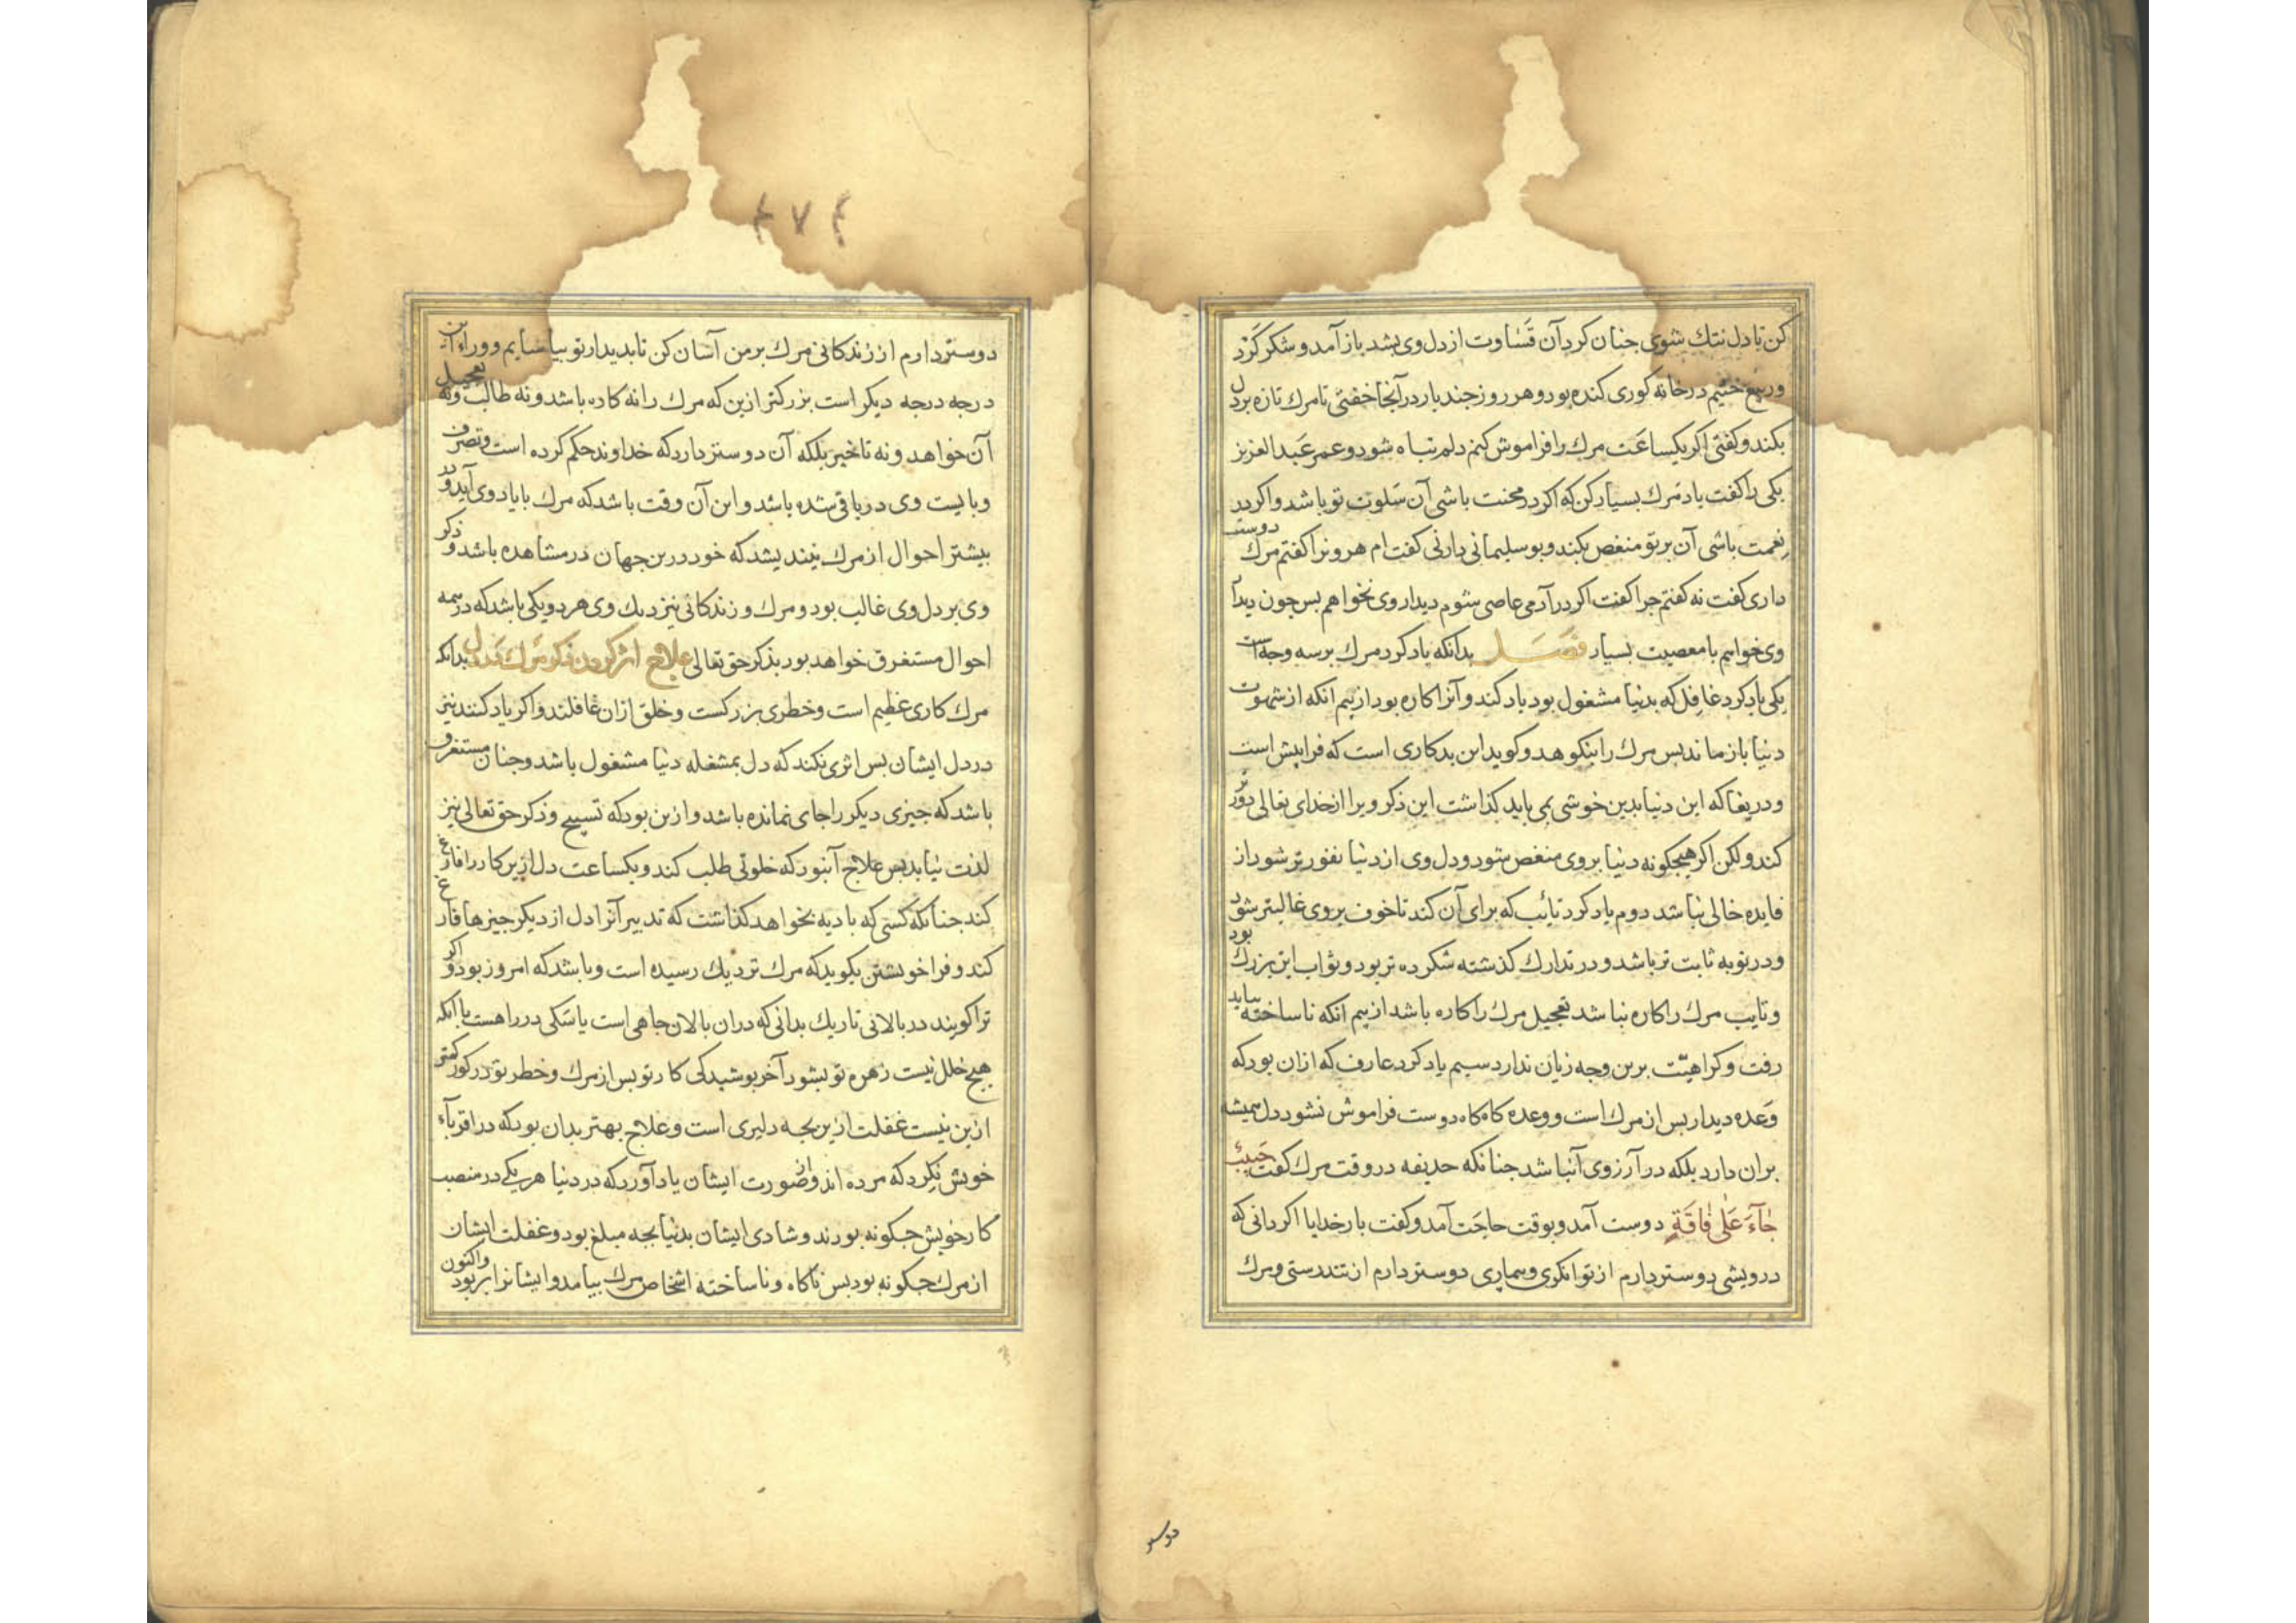 کن تا دل تنک شوی جنان کرد آن قَسٰاوت از دل وی بشد باز آمد و شکر کَرْد
و ربیع خثیم در خانه کوری کنده بود و هر روز جند بار در آنجا خفتی تا مرك تازه بر دل
بکند و کفتی اکر یکساعَت مرك را فراموش کنم دلم تباه شود و عمر عَبد العزیز
یکی را کفت یاد مَرك بسیار کن که اکر در محنت باشی آن سَلوت تو باشد و اکر در
نِعمت باشی آن بر تو منغص بکند و بو سلیمانی دارنی کفت ام هرونرا کفتم مرك دوست
داری کفت نه کفتم جرا کفت اکر در آدمی عاصی شوم دیدار وی نخواهم بس جون دیدار
وی خواهم با معصیت بسیار فصَل بدانکه یاد کرد مرك بر سه وجه است
یکی یاد کرد غافِل که بدنیا مشغول بود یاد کند و آنرا کاره بود از بیم انکه از شهوت
دنیا باز ماند بس مرك را بنکوهد و کوید این بد کاری است که فرا پیش است
و دریغا که این دنیا بدین خوشی می باید کذاشت این ذکر ویرا از خدای تعالی دوُرتر
کند ولکن اکر هیجکونه دنیا بر وی منغص شود و دل وی از دنیا نفور تر شود از
فایده خالی نباشد دوم یاد کرد تائب که برای آن کند تا خوف بر وی غالبتر شود
و در توبه ثابت تر باشد و در تدارك کذشته شکر ده تر بود و ثواب این بزرك بود
و تایب مرك را کاره نباشد تعجیل مرك را کاره باشد از بیم انکه ناساخته بباید
رفت و کراهیّت برین وجه زیان ندارد سیم یاد کرد عارف که ازان بود که
وَعده دیدار بس از مرك است و وعده کاه کاه دوست فراموش نشود دل همیشه
بران دارد بلکه در آرزوی آنباشد جنانکه حذیفه در وقت مرك کفت حَبیبٌ
جٰآءَ عَلیٰ فٰاقَةٍ دوست آمد و بوقت حاجَت آمد و کفت بار خدایا اکر دانی که
درویشی دوستر دارم از توانکری و بیماری دوستر دارم از تندرستی و مرك
دوستر
٤٧٤
دوستر دارم از زندکانی مرك بر من آسان کن تا بدیدار تو بیاسایم و وراء این
درجه درجه دیکر است بزرکتر ازین که مرك را نه کاره باشد و نه طالب و نه تعجیل
آن خواهد و نه تاخیر بلکه آن دوستر دارد که خداوند حکم کرده است و تصرف
و بایست وی در باقی شده باشد و این آن وقت باشد که مرك با یاد وی آید و در
بیشتر احوال از مرك نیندیشد که خود درین جهان در مشاهده باشد و ذکر
وی بر دل وی غالب بود و مرك و زندکانی نیز دیك وی هر دو یکی باشد که در همه
احوال مستغرق خواهد بود بذکر حق تعالی علاج اثر کردن ذکر مَرك در دل بدانکه
مرك کاری عَظیم است و خطری بزرکست و خلق ازان غافلند و اکر یاد کنند نیز
در دل ایشان بس اثری نکند که دل بمشغله دنیا مشغول باشد و جنان مستغرق
باشد که جیزی دیکر را جای نمانده باشد و ازین بود که تسبیح و ذکر حق تعالی نیز
لذت نیابد بس علاج آنبود که خلوتی طلب کند و یکساعت دل ازین کار را فارغ
کند جنانکه کَسی که بادیه بخواهد کذاشت که تدبیر آنرا دل از دیکر جیزها فارغ
کند و فرا خویشتن بکوید که مرك نزدیك رسیده است و باشد که امروز بود و اکر
ترا کویند در بالانی تاریك بدانی که دران بالان جاهی است یا سَنکی در راهست یا انکه
هیج خلل نیست زهره تو بشود آخر بوشیدکی کار تو بس از مرك و خطر تو در کور کمتر
ازین نیست غفلت ازین بجه دلیری است و علاج بهتر بدان بود که در اقرباء
خویش نِکرد که مرده اند و از صُورت ایشان یاد آورد که در دنیا هر یکی در منصب
کار خویش جکونه بودند و شادی ایشان بدنیا بجه مبلغ بود و غفلت ایشان
از مرك جکونه بود بس ناکاه و ناساخته اشخاص مرك بیامد و ایشانرا بربود و اکنون